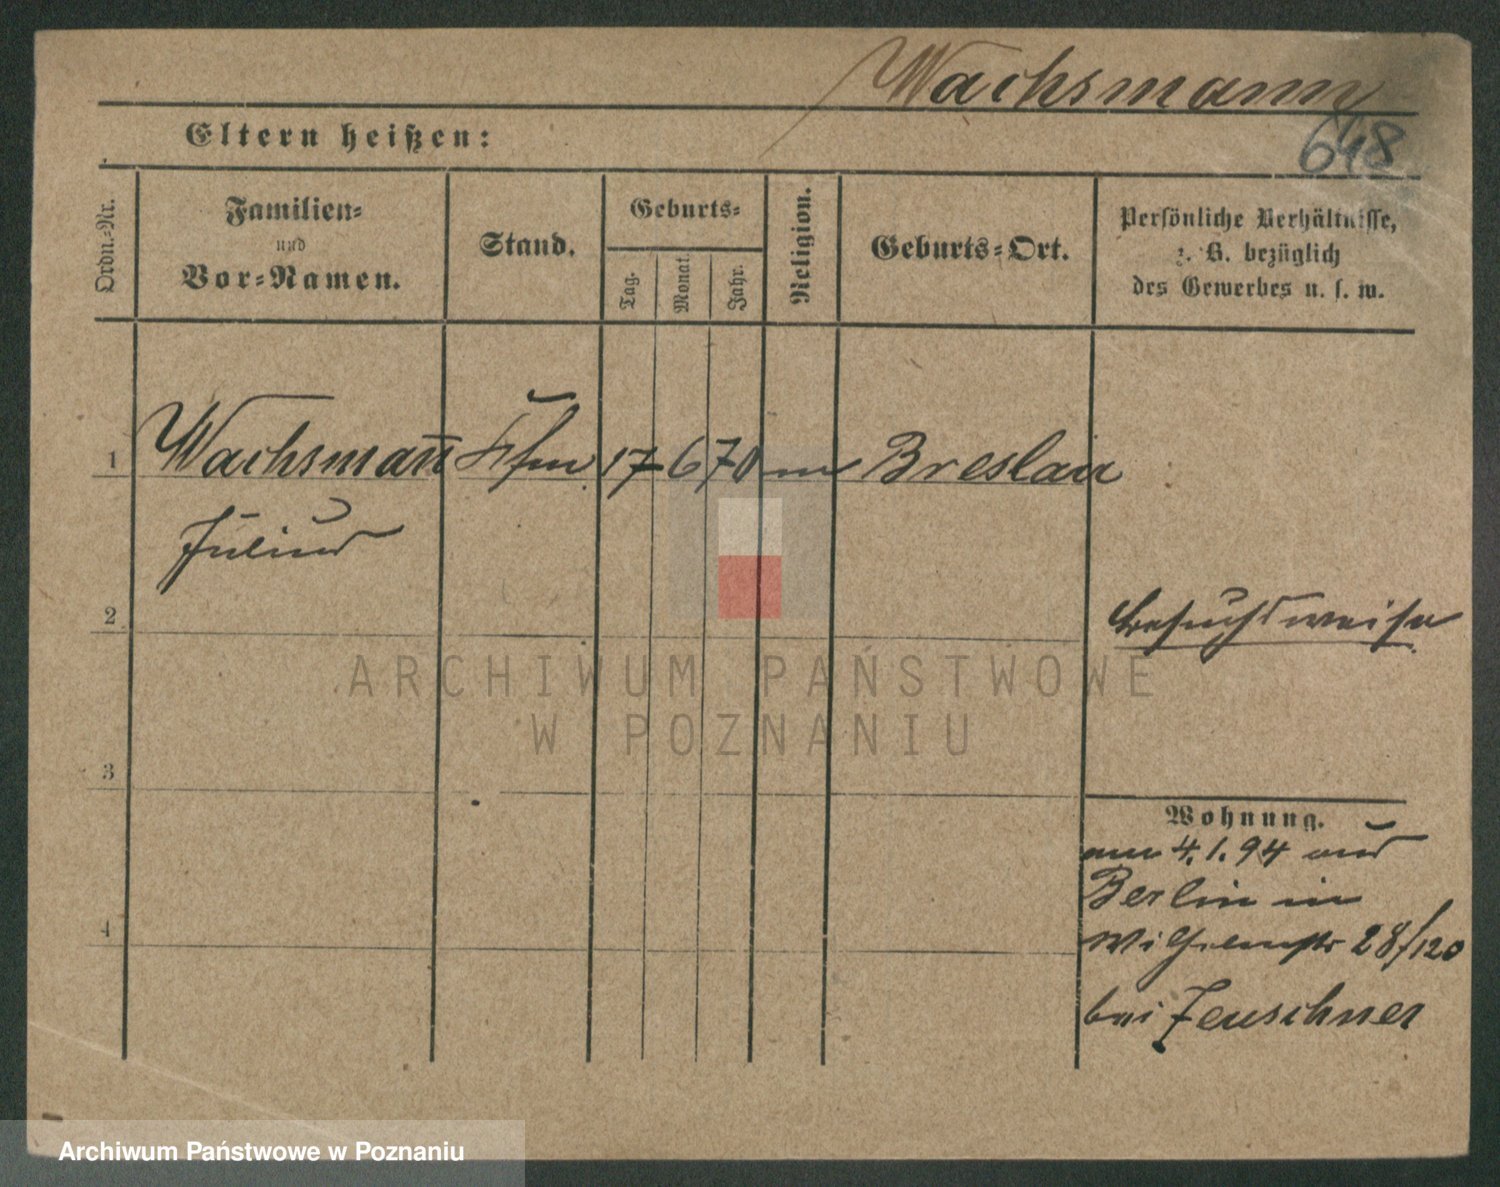 Wachsmann
648
Eltern heißen:
Ordn.-Nr.
Familien-
und
Vor-Namen.
Stand.
Geburts-
Tag.
Monat.
Jahr.
Religion.
Geburts-Ort.
Persönliche Verhältnisse,
z. B. bezüglich
des Gewerbes u. s. w.
1 Wachsmann̄ Kfm 17 6 70 m Breslau
Julius
2
besuchsweise
ARCHIWUM PAŃSTWOWE
W POZNANIU
3
Wohnung.
am 4.1.94 aus
Berlin in
4
Wilhelmstr 28/120
bei Zeuschner
Archiwum Państwowe w Poznaniu